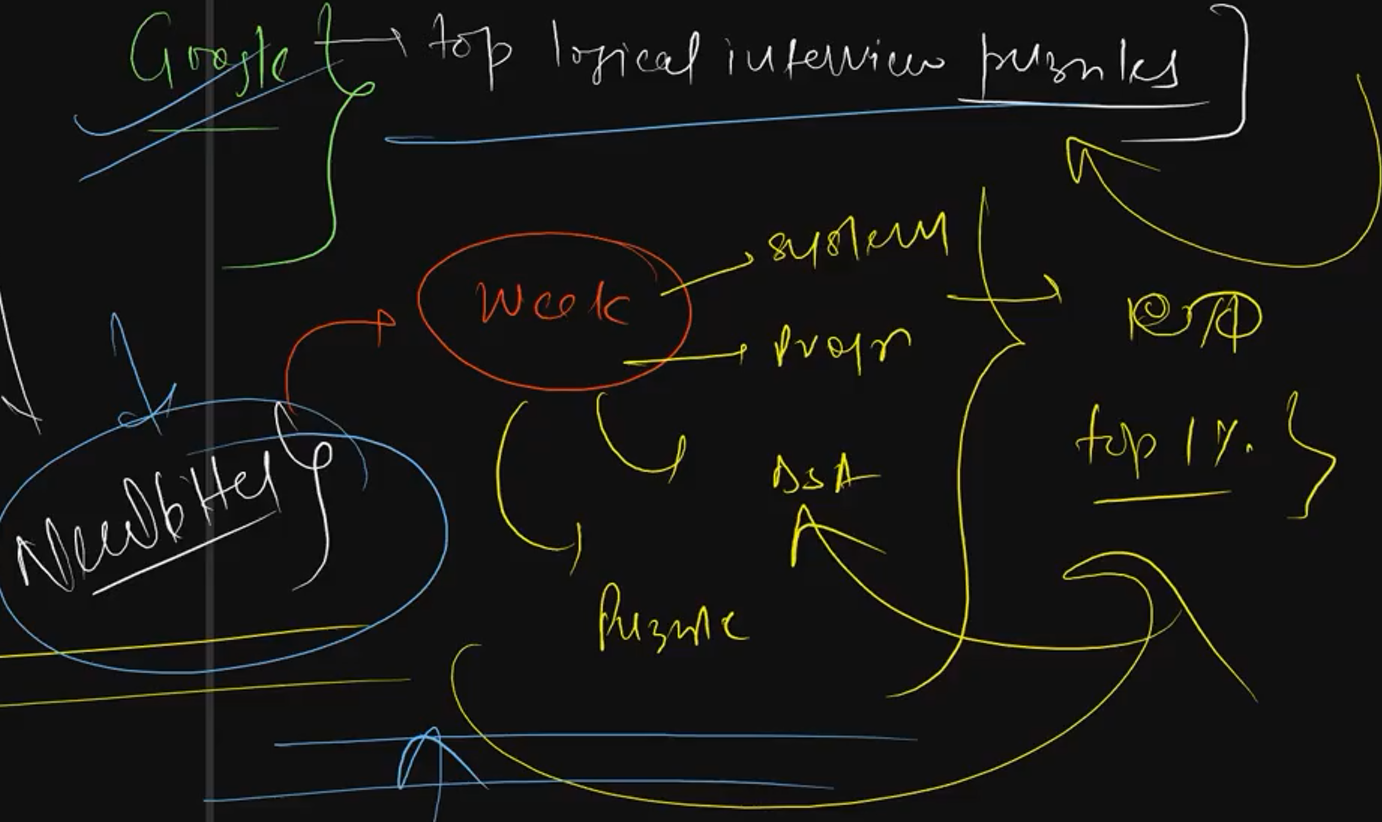 Google → top logical interview puzzles
Week
→ system
→ progr
DSA
puzzle
top 1%.